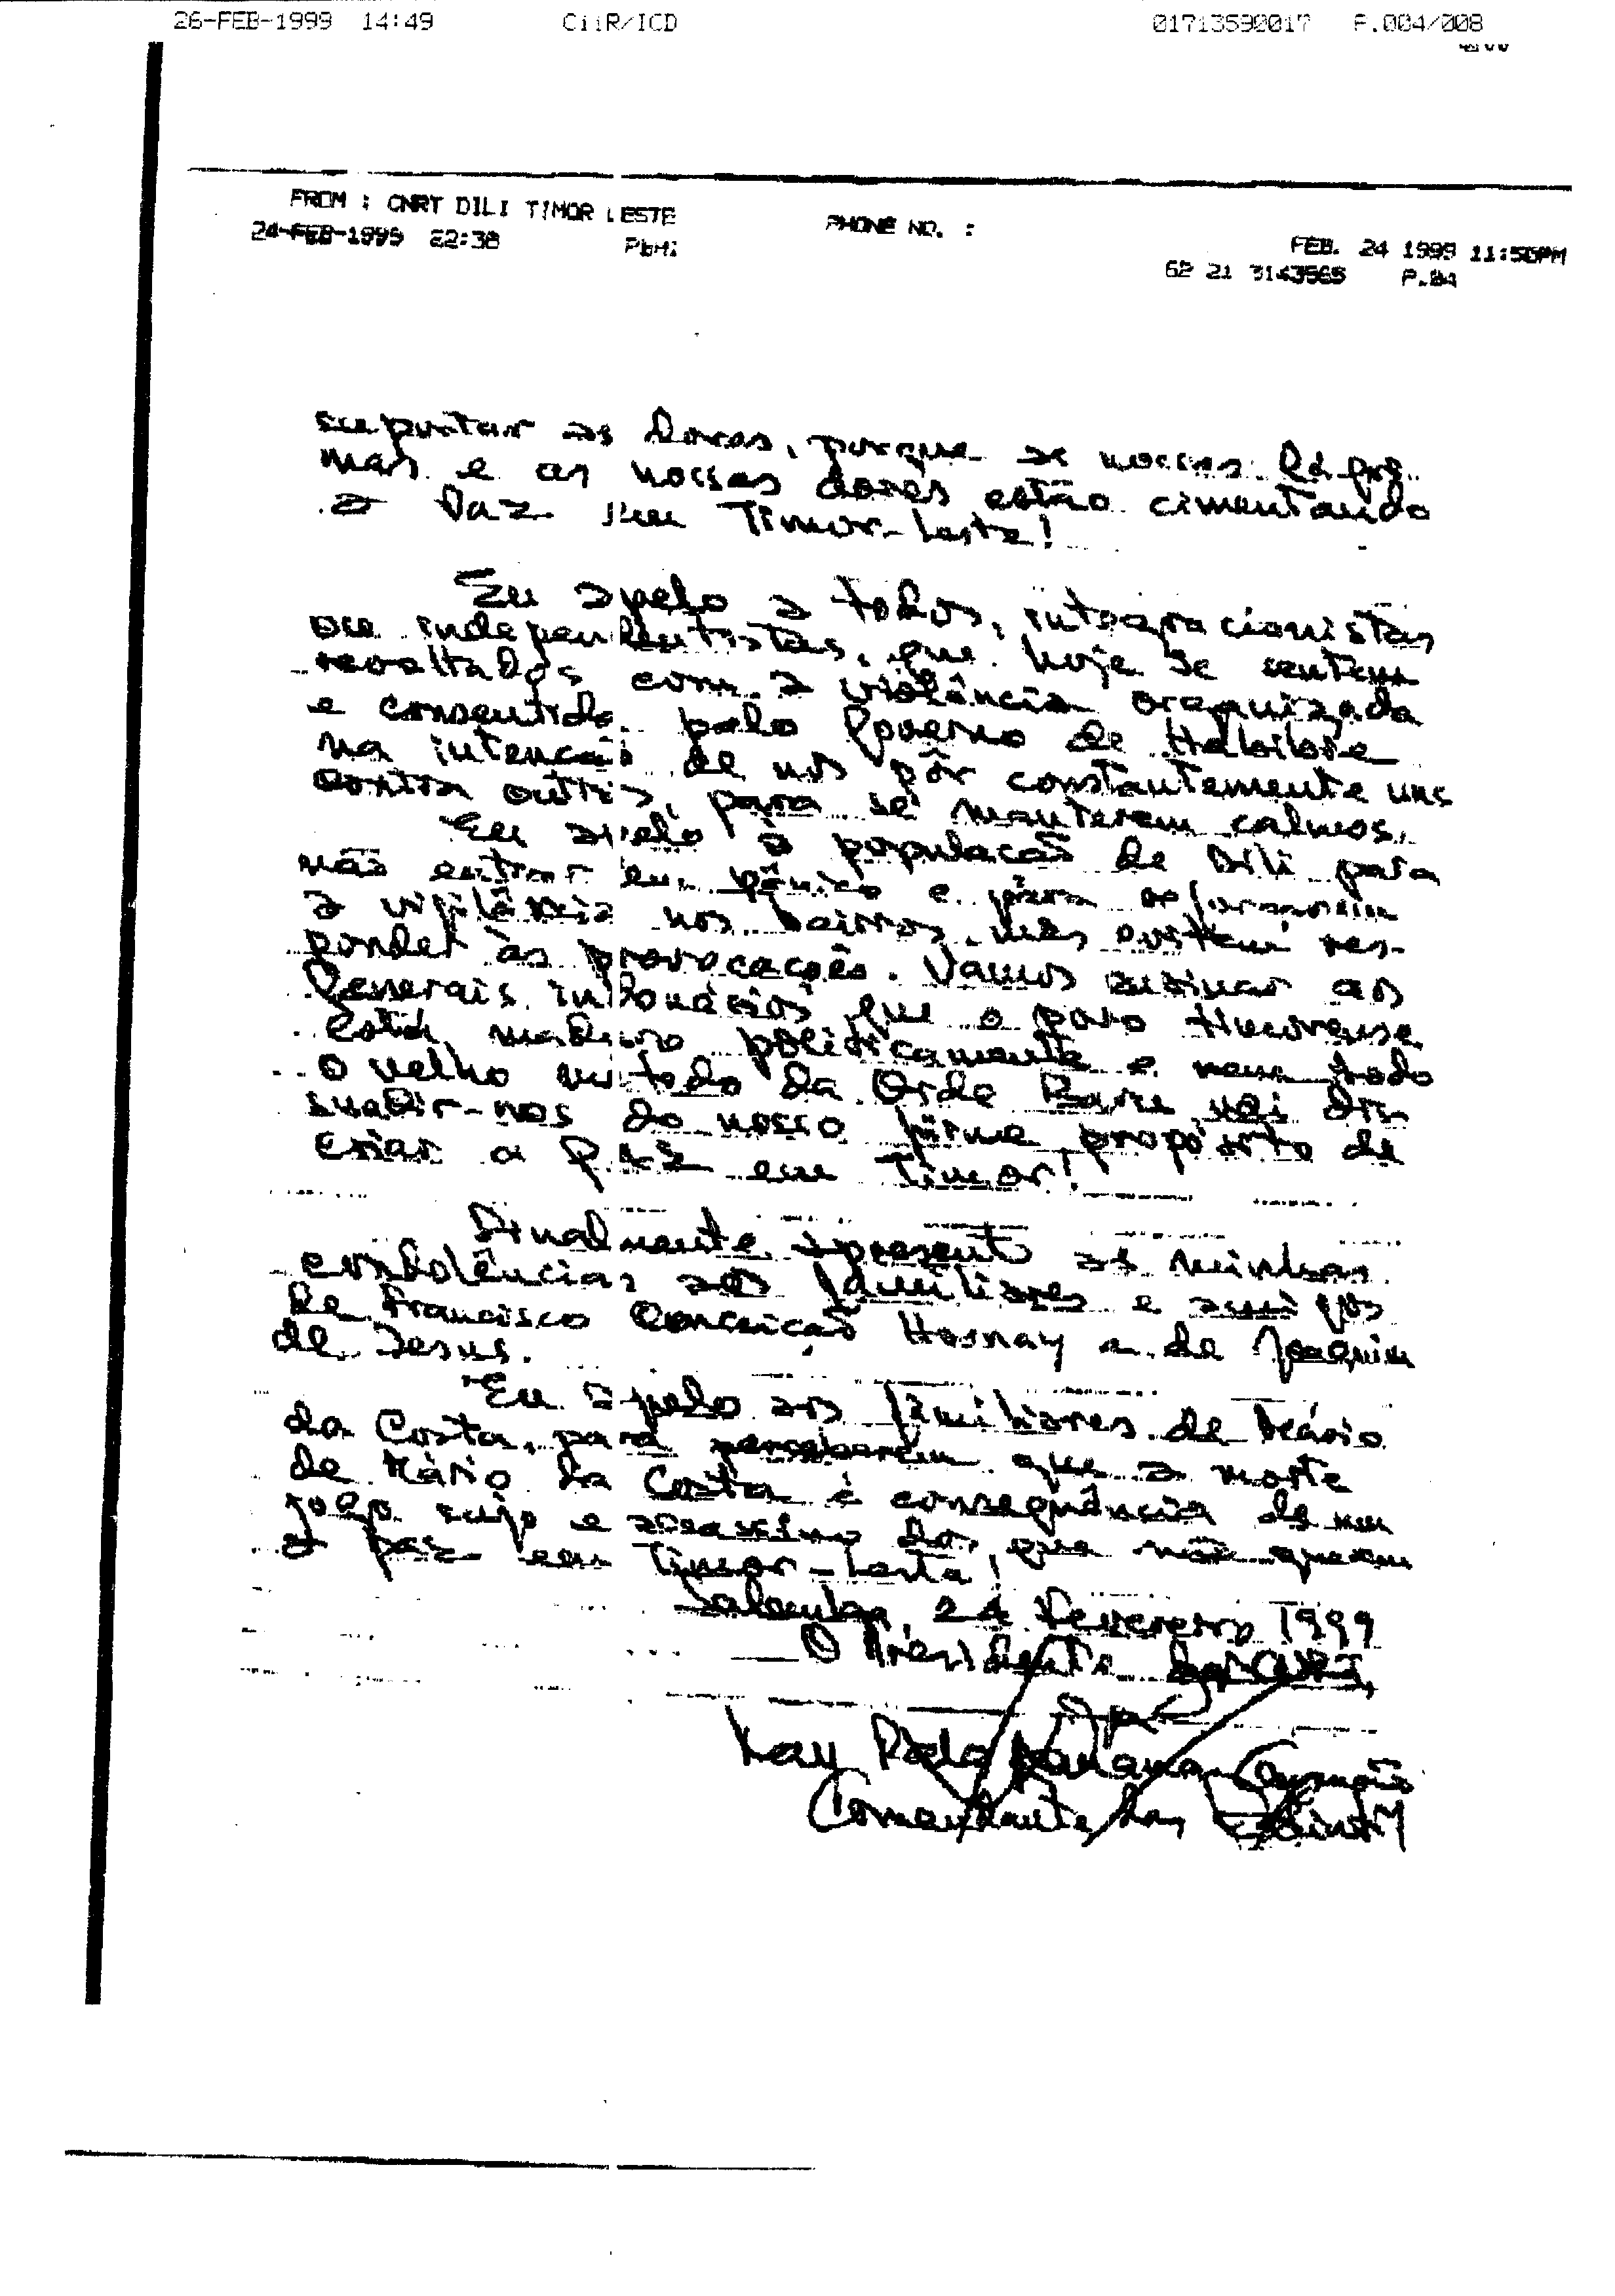 26-FEB-1999 14:49 CiiR/ICD 01713590017 P.004/008
FROM : CNRT DILI TIMOR LESTE PHONE NO. :
24-FEB-1999 22:38 FEB. 24 1999 11:50PM
62 21 3143565 P.04
suportar as dores, porque as nossas lágri-
mas e as nossas dores estão cimentando
a Paz em Timor-Leste!
Eu apelo a todos, integracionistas
ou independentistas, que hoje se sentem
revoltados com a violência organizada
e consentida pelo Governo de Habibie
na intenção de nos pôr constantemente uns
contra outros, para se manterem calmos.
Eu apelo à população de Dili para
não entrar em pânico e para reforçarem
a vigilância nos bairros, mas evitem res-
ponder às provocações. Vamos ensinar aos
Generais indonésios que o povo timorense
está maduro politicamente e nem todo
o velho método da Orde Baru vai dis-
suadir-nos do nosso firme propósito de
criar a PAZ em Timor!
Finalmente apresento as minhas
condolências aos familiares e amigos
de Francisco Conceição Hornay e de Joaquim
de Jesus.
Eu apelo aos familiares de Mário
da Costa, para perceberem que a morte
de Mário da Costa é consequência de um
jogo sujo e assassino dos que não querem
a paz em Timor-Leste!
Salemba, 24 Fevereiro 1999
O Presidente do CNRT,
Kay Rala Xanana Gusmão
Comandante das Falintil